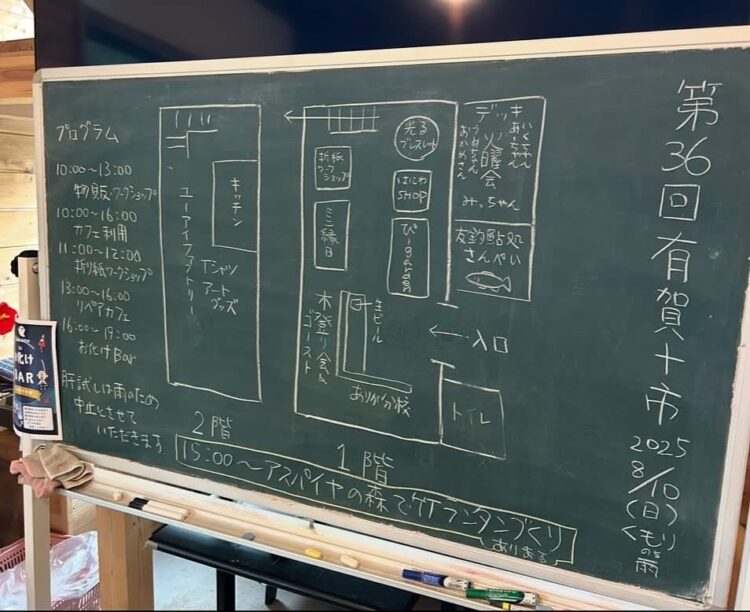 第36回有賀十市
2025
8/10
(日)
くもりの雨
プログラム
10:00~13:00
物販・ワークショップ
10:00~16:00
カフェ利用
11:00~12:00
折り紙ワークショップ
13:00~16:00
リペアカフェ
16:00~19:00
お化けBar
肝試しは雨のため
中止とさせて
いただきます
キッチン
ユーアイファクトリー
Tシャツ
アート
グッズ
2階
光る
ブレスレット
折紙
ワーク
ショップ
はにわ
SHOP
ミニ縁日
ぴーgarden
木登り会&
ゴースト
生ビール
ありが分校
1階
デッキ
火曜会
みっちゃん
友釣鮎処
さんぺい
←入口
トイレ
15:00~アスパイヤの森で竹ランタンづくり
BAR